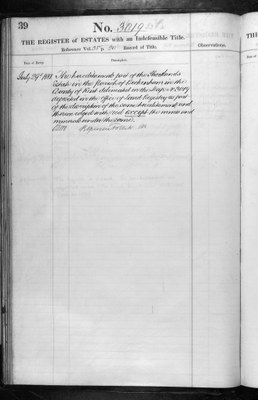 39
No. 3019
THE REGISTER of ESTATES with an Indefeasible Title.
Reference Vol. p. Record of Title.
Observations.
Date of Entry.
Description.
July 29th 1881 The hereditament part of the
Estate in the Parish of in the
County of Kent delineated on the Map No 3019
deposited in the Office of Land Registry as part
of the description of the same hereditament and
thereon edged with red except the mines and
minerals under the same